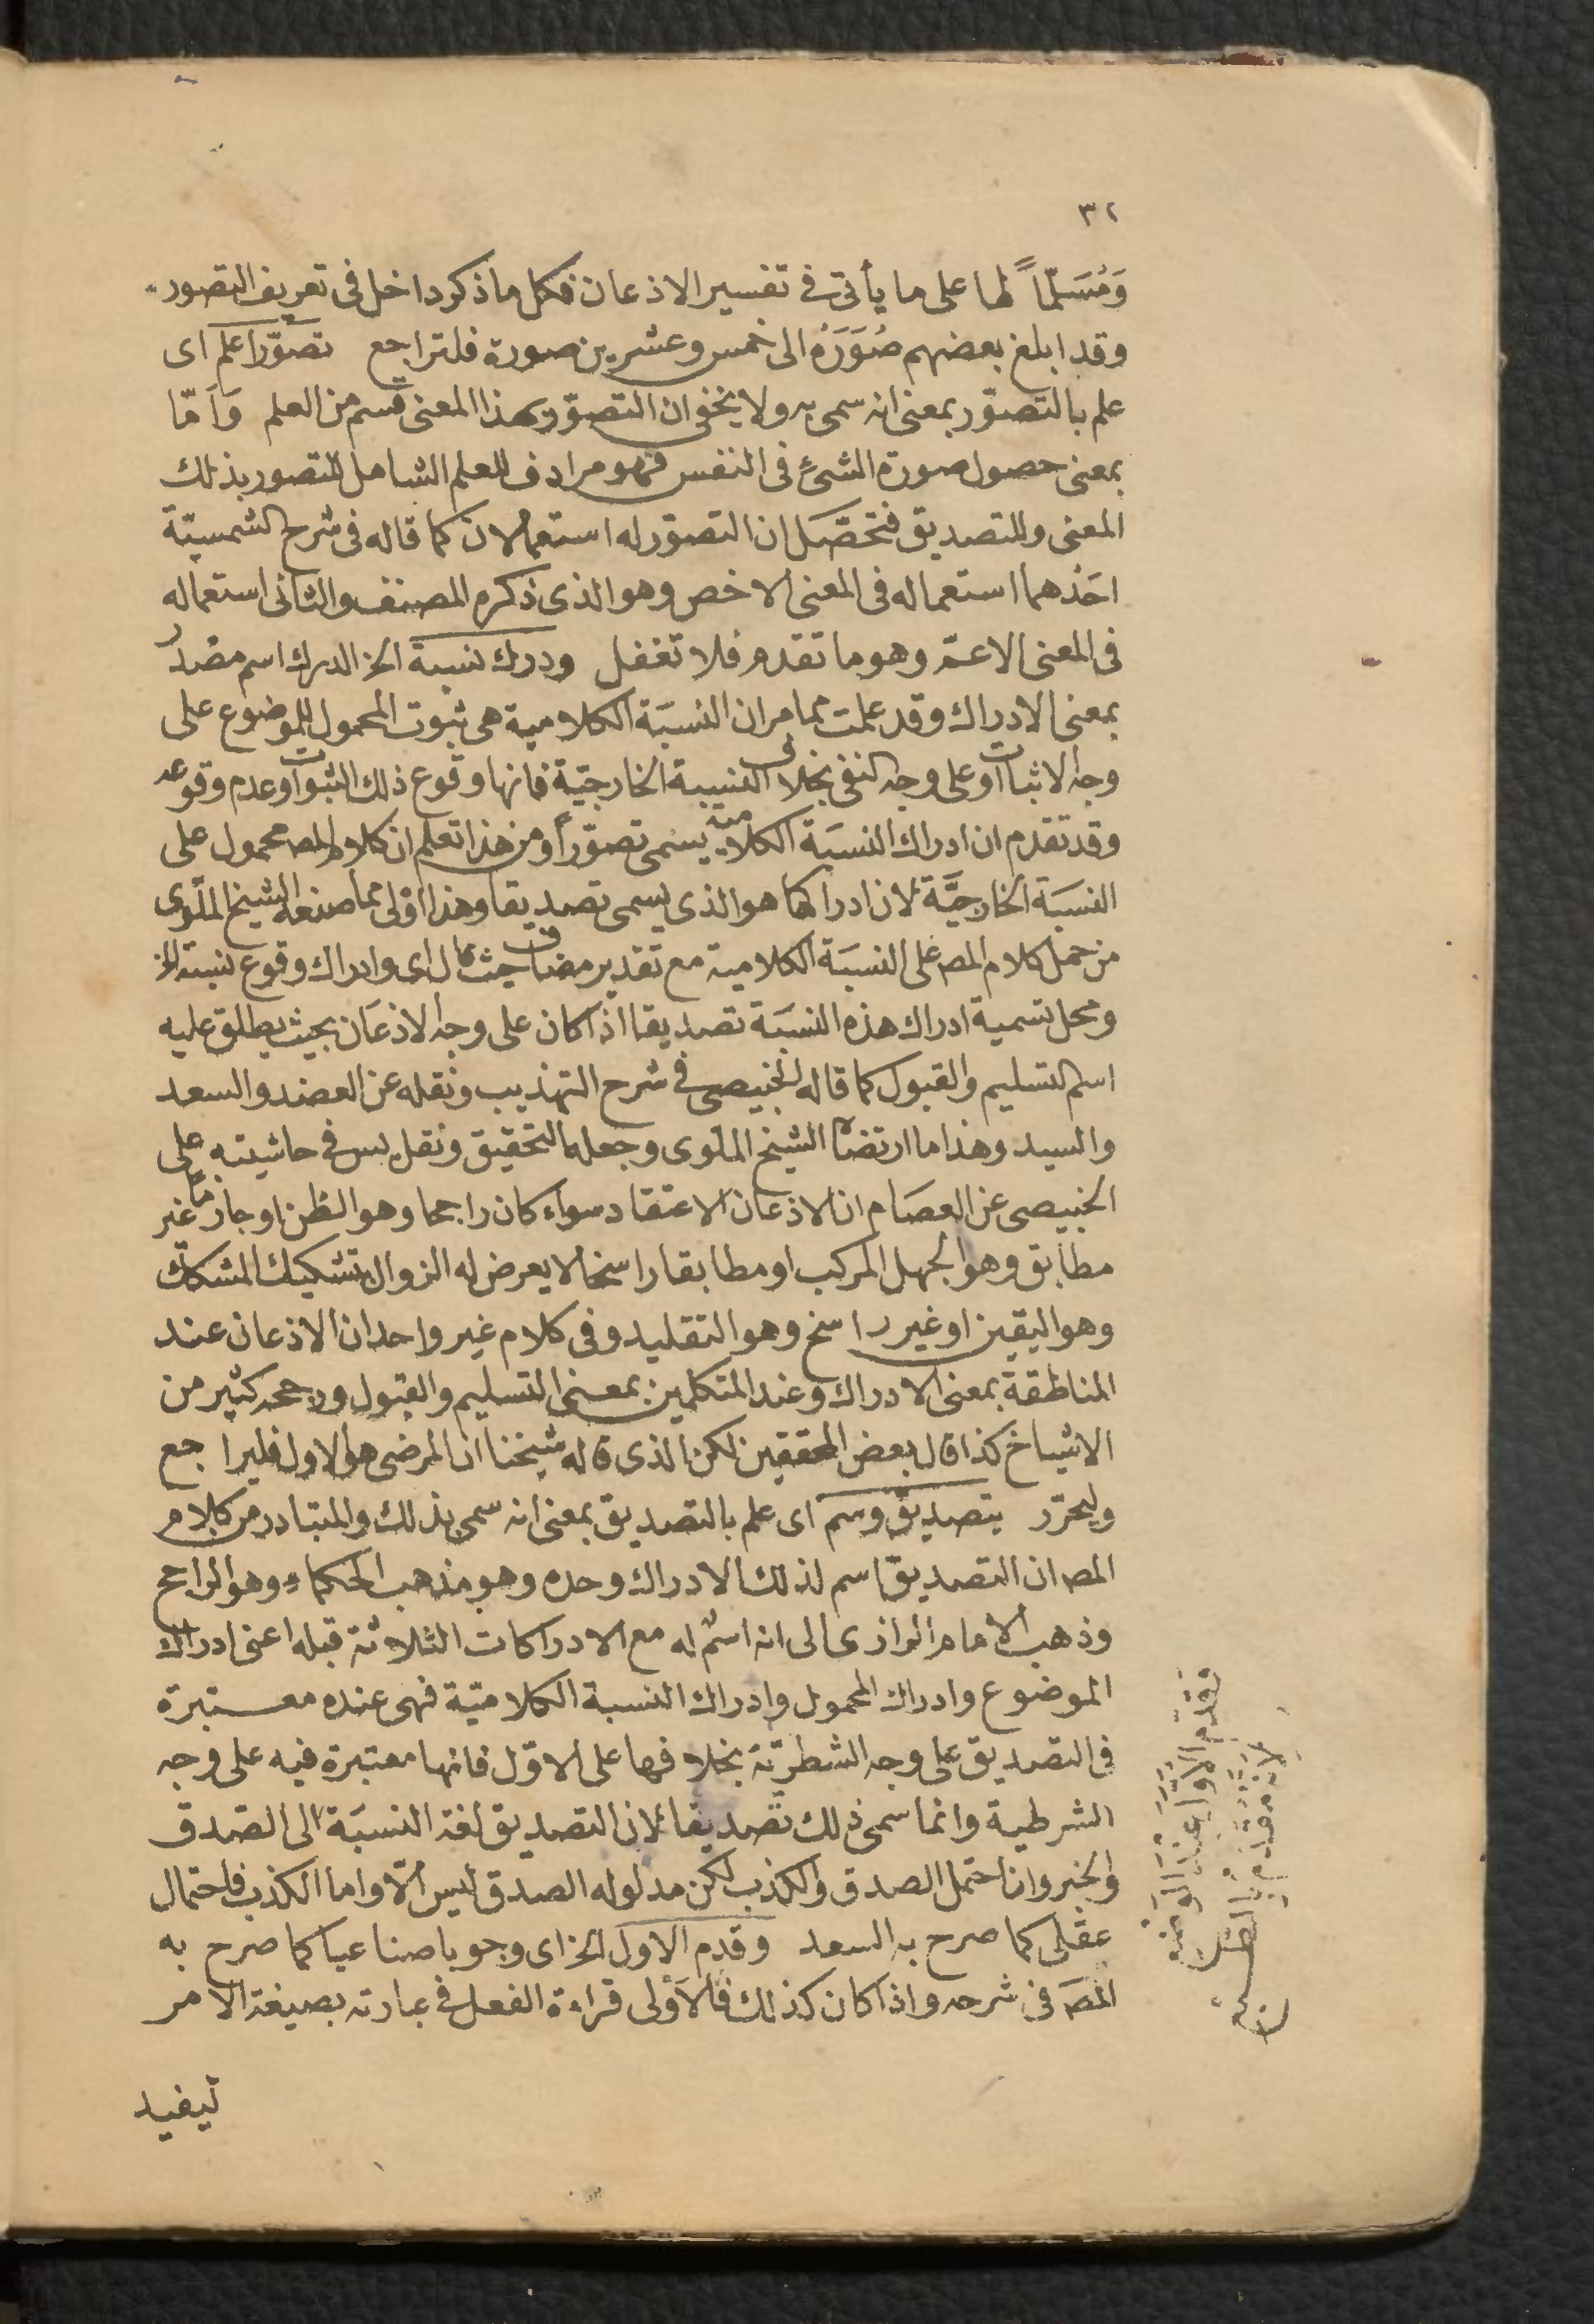 ٣٢
وَمُسَلّماً لها على ما يأتى فى تفسير الاذعان فكل ما ذكر داخل فى تعريف التصور
وقد ابلغ بعضهم صُوَرَهُ الى خمس وعشرين صورة فلتراجع تصوّرا علم اى
علم بالتصوّر بمعنى انه سمى به ولا يخفى ان التصوّر بهذا المعنى قسم من العلم وَأمّا
بمعنى حصول صورة الشئ فى النفس فهو مرادف للعلم الشامل للتصور بذلك
المعنى وللتصديق فتحصّل ان التصوّر له استعمالان كما قاله فى شرح الشمسيّة
احَدُهما استعماله فى المعنى الاخص وهو الذى ذكره المصنف والثانى استعماله
فى المعنى الاعمّ وهو ما تقدم فلا تغفل ودرك نسبة الخ الدرك اسم مصدر
بمعنى الادراك وقد علمت مما مر ان النسبَة الكلامية هى ثبوت المحمول للموضوع على
وجه الاثبات او على وجه النفى بخلاف النسبة الخارجيّة فانها وقوع ذلك الثبوت او عدم وقوعه
وقد تقدم ان ادراك النسبَة الكلامية يسمى تصوّراً ومن هذا تعلم ان كلام المصـ محمول على
النسبَة الخارجيَّة لان ادراكها هو الذى يسمى تصديقا وهذا اوْلى مما صنعه الشيخ الملّوى
من حمل كلام المصـ على النسبَة الكلامية مع تقدير مضاف حيث قال اى وادراك وقوع نسبة الخ
ومحل تسمية ادراك هذه النسبَة تصديقا اذا كان على وجه الاذعَان بحيث يطلق عليه
اسم التسليم والقبول كما قاله الخبيصى فى شرح التهذيب ونقله عن العضد والسعد
والسيد وهذا ما ارتضاه الشيخ الملوى وجعله التحقيق ونقل يس فى حاشيته على
الخبيصى عن العصَام ان الاذعان الاعتقاد سواء كان راجحا وهو الظن او جازما غير
مطابق وهو الجهل المركب او مطابقا راسخا لا يعرض له الزوال بتشكيك المشكك
وهو اليقين او غير راسخ وهو التقليد وفى كلام غير واحد ان الاذعان عند
المناطقة بمعنى الادراك وعند المتكلمين بمعنى التسليم والقبول ورجحه كثير من
الاشياخ كذا قال بعض المحققين لكن الذى قاله شيخنا ان المرضى هو الاول فليراجع
وليحرّر بتصديق وسم اى علم بالتصديق بمعنى انه سمى بذلك والمتبادر من كلام
المصـ ان التصديق اسم لذلك الادراك وحده وهو مذهب الحكماء وهو الراجح
وذهب الامام الرازى الى انه اسم له مع الادراكات الثلاثة قبله اعنى ادراك
الموضوع وادراك المحمول وادراك النسبة الكلاميّة فهى عنده معـتبرة
فى التصديق على وجه الشطريّة بخلافها على الاوّل فانها معتبرة فيه على وجه
الشرطية وانما سمى ذلك تصديقا لان التصديق لغة النسبَة الى الصدق
والخبر وان احتمل الصدق والكذب لكن مدلوله الصدق ليس الّا واما الكذب فاحتمال
عقلى كما صرح به السعد وقدم الاول الخ اى وجوبا صناعيا كما صرح به
المصَ فى شرحه واذا كان كذلك فالأولى قراءة الفعل فى عبارته بصيغة الامر
ليفيد
تقدّم الاول عند الوضع
لانه مقدم بالطبع